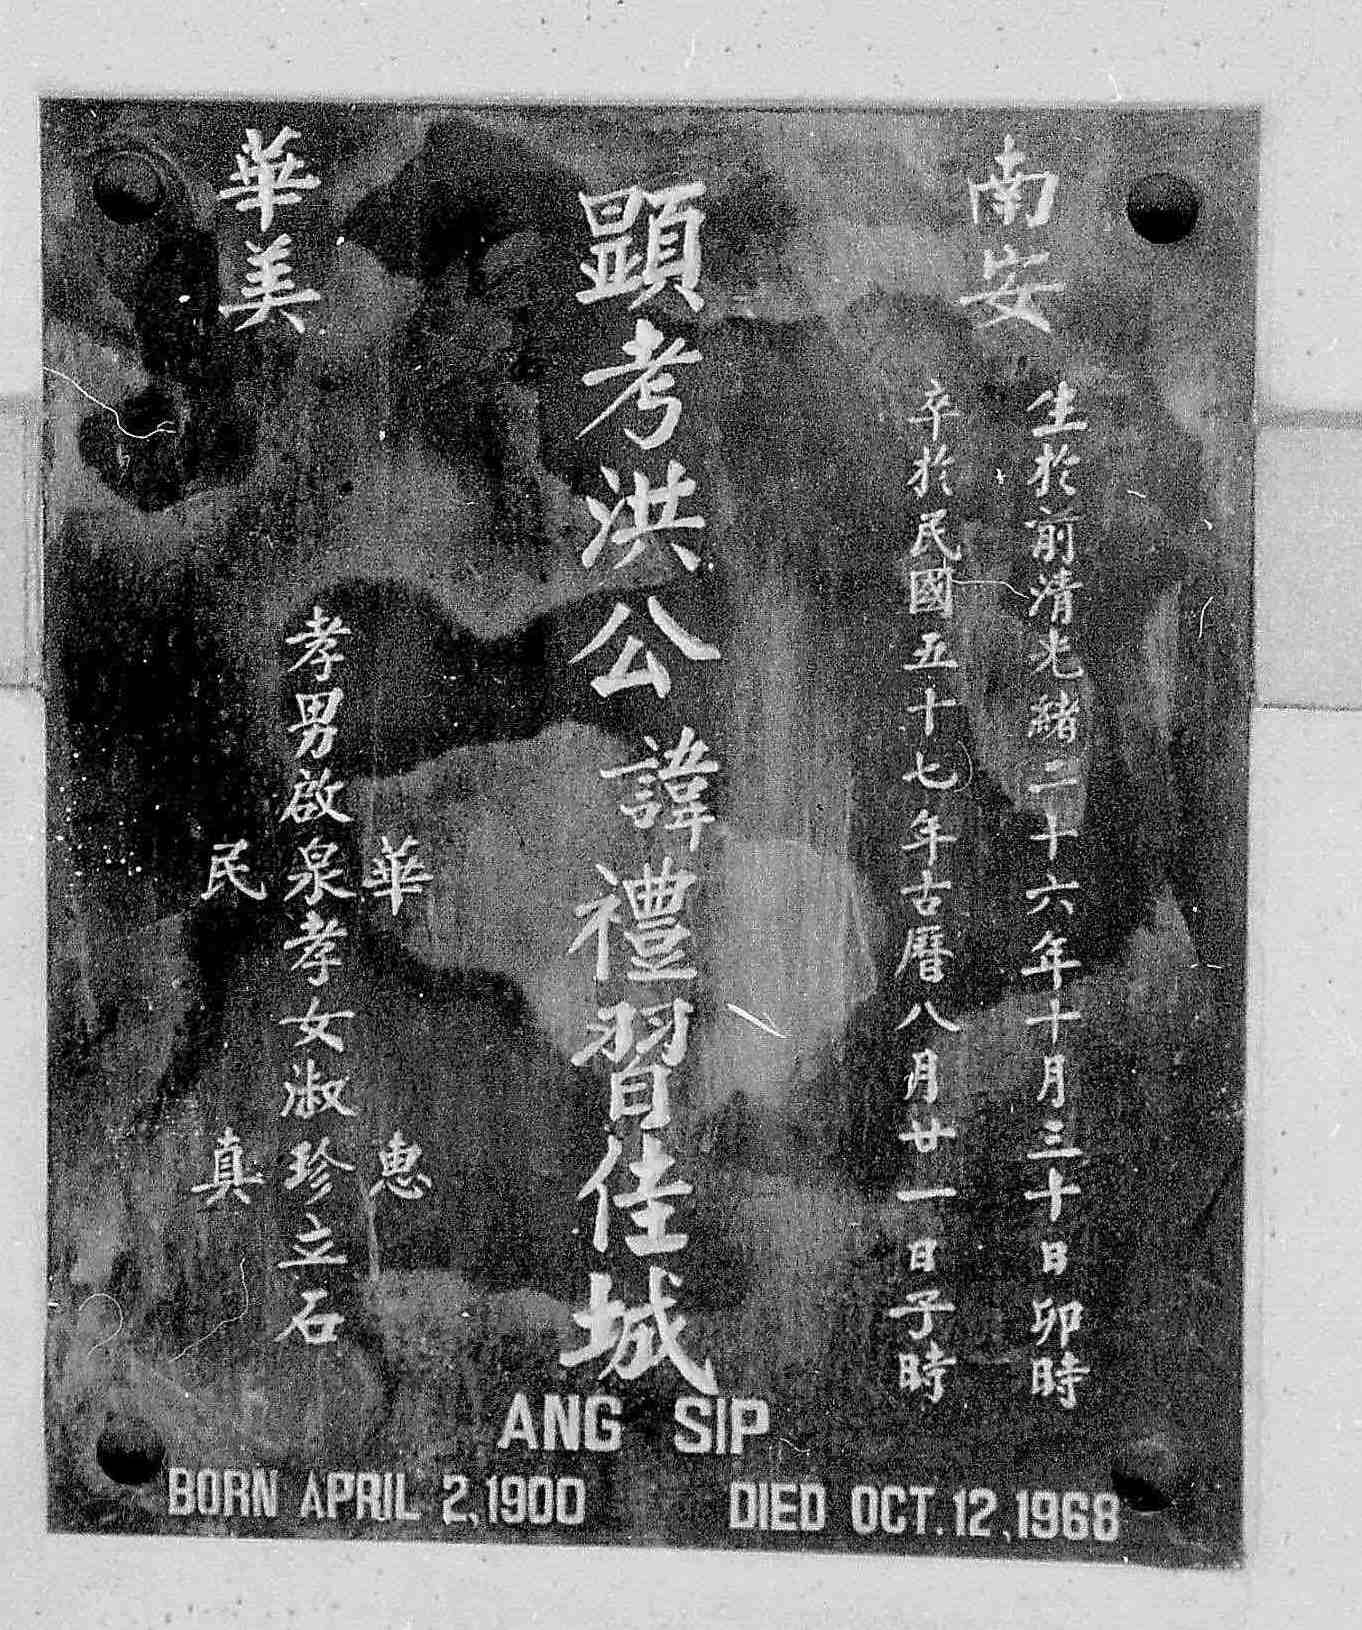 南安
生於前清光緒二十六年十月三十日卯時
卒於民國五十七年古曆八月廿一日子時
顯考洪公諱禮習佳城
華惠
孝男啟泉孝女淑珍立石
民真
華美
ANG SIP
BORN APRIL 2,1900 DIED OCT.12,1968